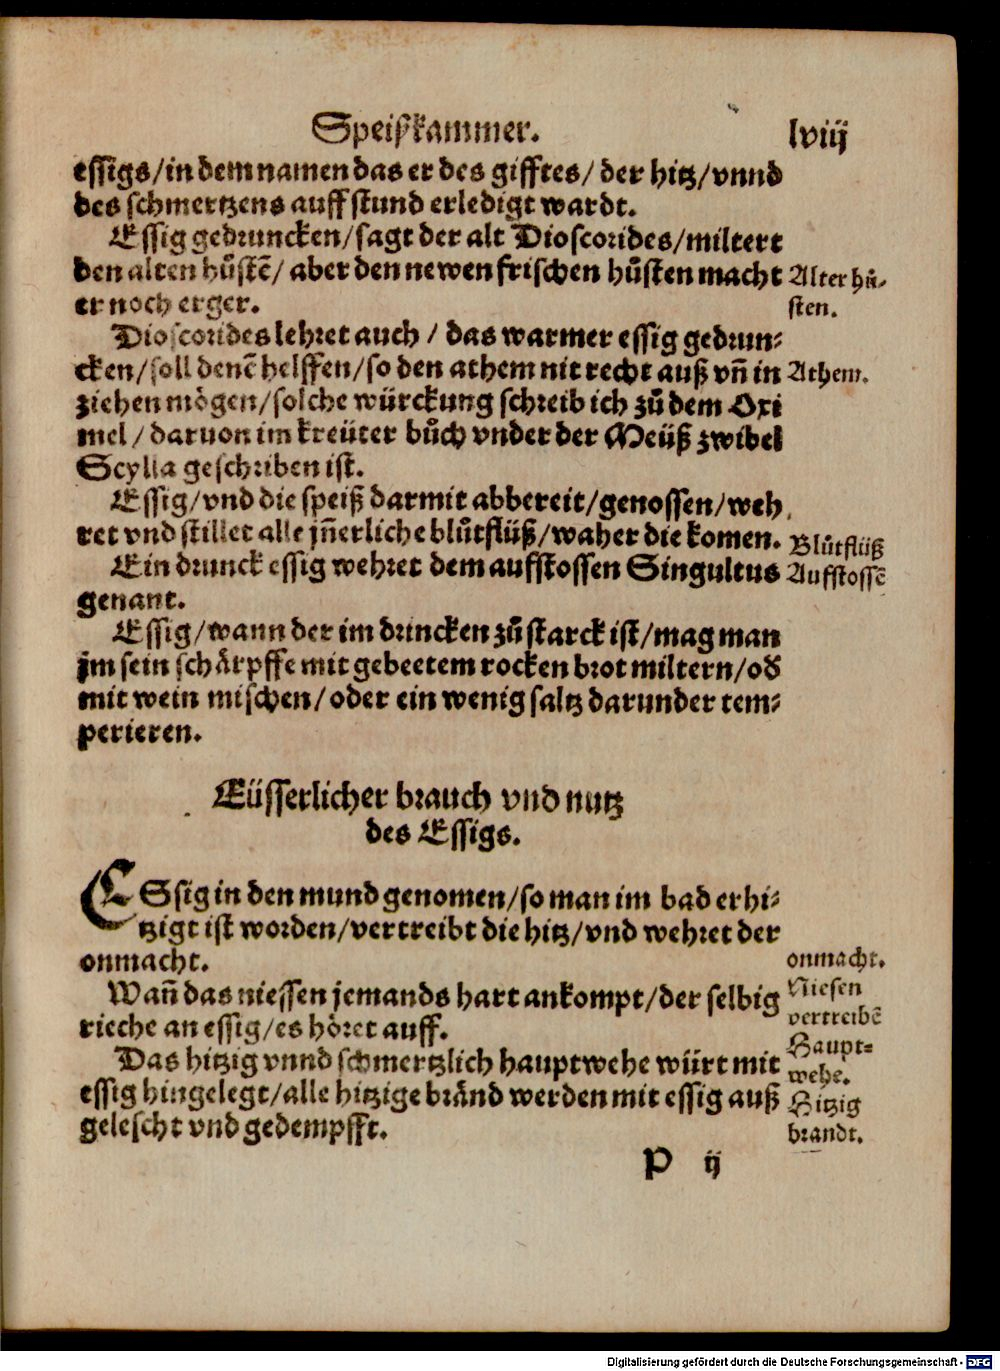 Speißkammer. lviij
essigs/in dem namen das er des gifftes/ der hitz/vnnd
des schmertzens auff stund erledigt wardt.
Essig gedruncken/sagt der alt Dioscorides/miltert
den alten hůstẽ/ aber den newen frischen hůsten macht
er noch erger.
Alter hů-
sten.
Dioscorides lehret auch / das warmer essig gedrun-
cken/soll denẽ helffen/so den athem nit recht auß vñ in
Athem.
ziehen mögen/solche würckung schreib ich zů dem Oxi
mel/ daruon im kreüter bůch vnder der Meüß zwibel
Scylla geschriben ist.
Essig/vnd die speiß darmit abbereit/genossen/weh
ret vnd stillet alle jñerliche blůtflüß/waher die komen.
Blůtflüß
Ein drunck essig wehret dem aufstossen Singultus
Aufstossẽ
genant.
Essig/wann der im drincken zů starck ist/mag man
jm sein schärpffe mit gebeetem rocken brot miltern/od
mit wein mischen/oder ein wenig saltz darunder tem-
perieren.
Eüsserlicher brauch vnd nutz
des Essigs.
ESsig in den mund genomen/so man im bad erhi-
tzigt ist worden/vertreibt die hitz/vnd wehret der
onmacht.
onmacht.
Wañ das niessen jemands hart ankompt/der selbig
rieche an essig/es höret auff.
Niesen
vertreibẽ
Das hitzig vnnd schmertzlich hauptwehe würt mit
essig hingelegt/alle hitzige bränd werden mit essig auß
gelescht vnd gedempfft.
Haupt-
wehe.
Hitzig
brandt.
P ij
Digitalisierung gefördert durch die Deutsche Forschungsgemeinschaft - DFG